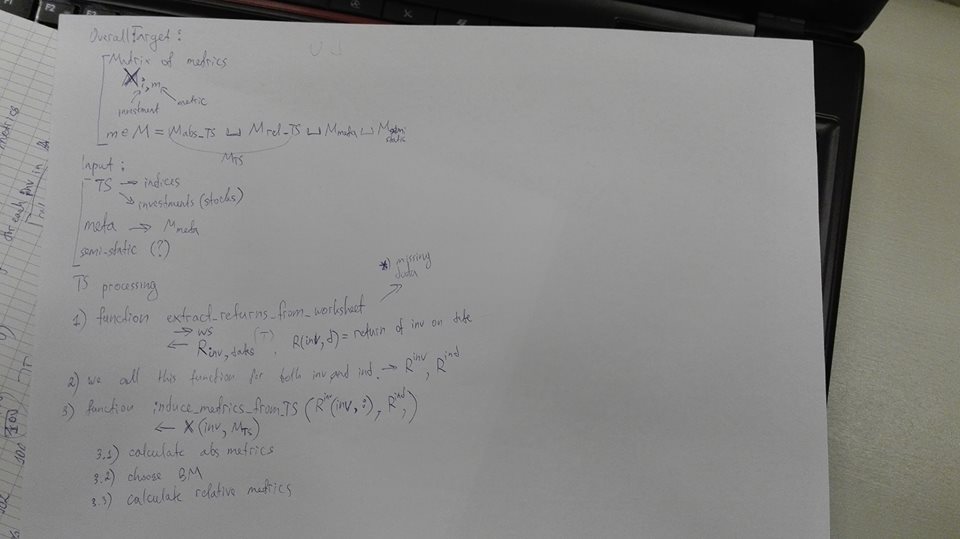 Overall Target:
Matrix of metrics
X i, m
investment metric
m ∈ M = Mabs_TS ⊔ Mrel_TS ⊔ Mmeta ⊔ Msemi static
MTS
Input:
TS → indices
→ investments (stocks)
meta → Mmeta
semi-static (?)
TS processing
*) missing data
1) function extract_returns_from_worksheet
→ ws
← Rinv, dates (T) . R(inv, d) = return of inv on date
2) we call this function for both inv and ind. → R^inv, R^ind
3) function induce_metrics_from_TS (R^inv(inv, :), R^ind, )
← X (inv, MTS)
3.1) calculate abs metrics
3.2) choose BM
3.3) calculate relative metrics
metrics
for each inv in
100